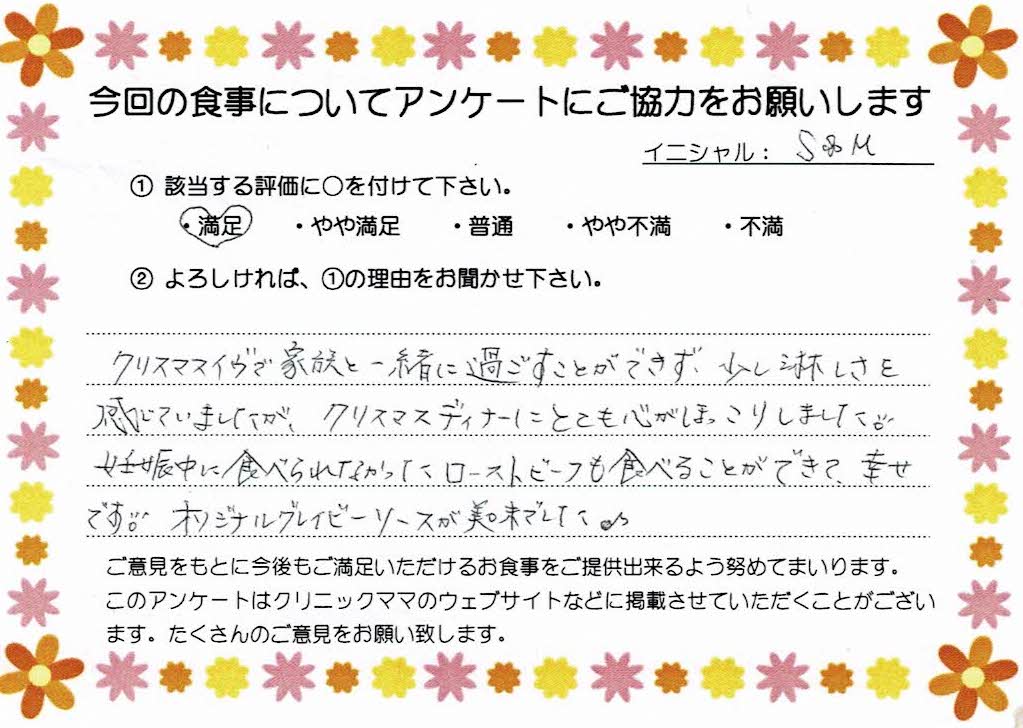 今回の食事についてアンケートにご協力をお願いします
イニシャル： S&M
① 該当する評価に〇を付けて下さい。
・満足 ・やや満足 ・普通 ・やや不満 ・不満
② よろしければ、①の理由をお聞かせ下さい。
クリスマスイヴで家族と一緒に過ごすことができず、少し淋しさを
感じていましたが、クリスマスディナーにとても心がほっこりしました。
妊娠中に食べられなかったローストビーフも食べることができて、幸せ
です。オリジナルグレイビーソースが美味でした♪
ご意見をもとに今後もご満足いただけるお食事をご提供出来るよう努めてまいります。
このアンケートはクリニックママのウェブサイトなどに掲載させていただくことがござい
ます。たくさんのご意見をお願い致します。